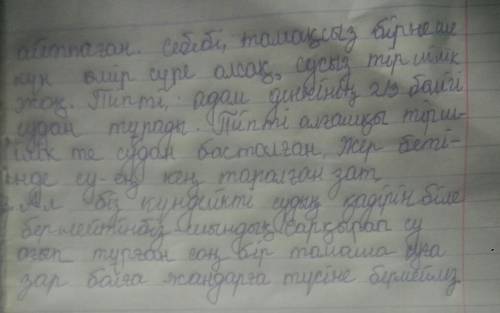 айтпаған. Себебі, тамақсыз бірнеше
күн өмір сүре алсақ, сусыз тіршілік
жоқ. Тіпті, адам денесінің 2/3 бөлігі
судан тұрады. Тіпті алғашқы тірш-
ілік те судан басталған. Жер беті-
нде су-ең кең таралған зат.
Ал біз күнделікті судың қадірін біле
бермейтініміз шындық. Сарқырап су
ағып тұрған соң бір тамшы суға
зар болған жандарға түсіне бермейміз